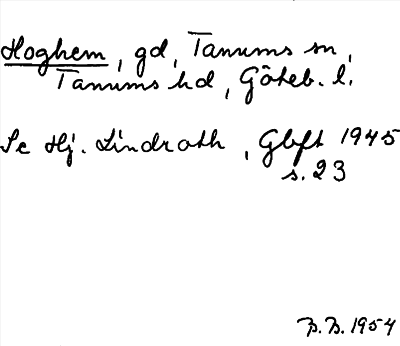 Hoghem, gd, Tanums sn,
Tanums hd, Göteb. l.
Se Hj. Lindroth, Gbft 1945
s. 23
B. B. 1954